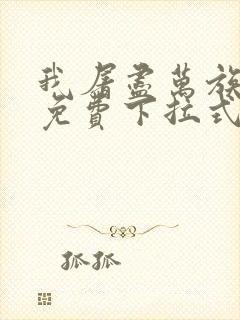 我屠尽萬族
免費下拉式
孤孤